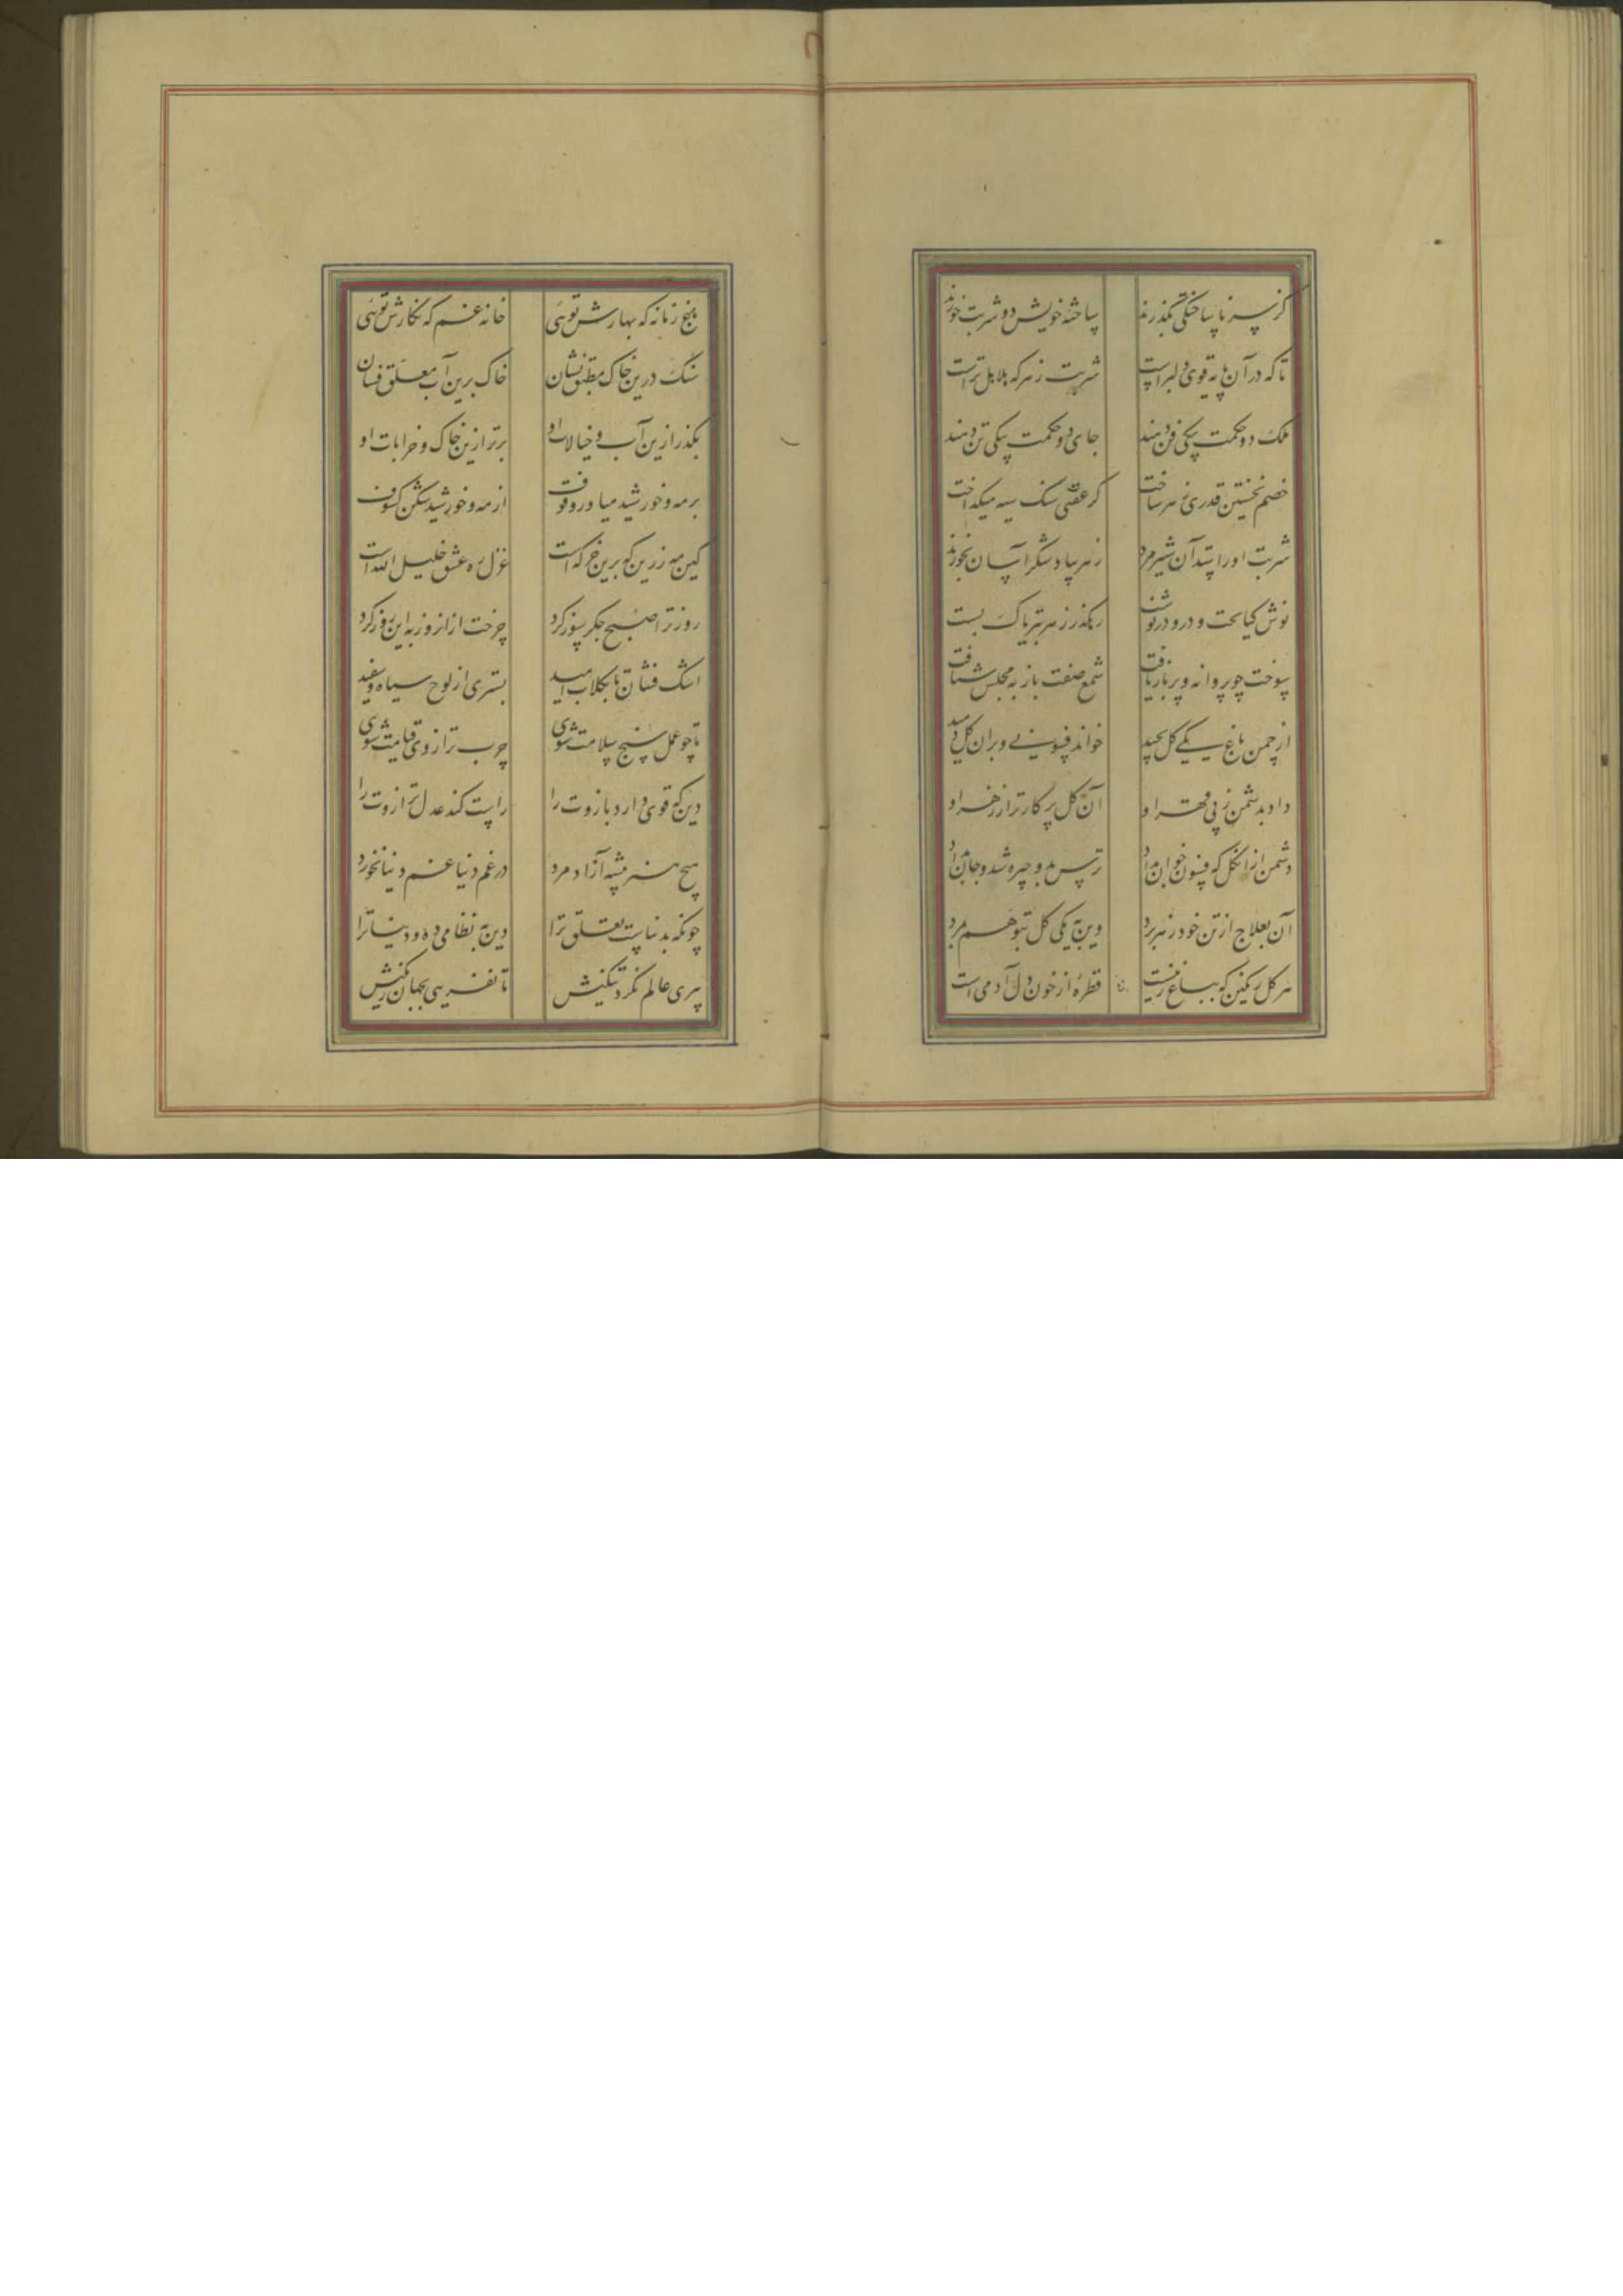 کز سر ناساختگی بگذرند ساخته خویش دو شربت خورند
تا که در آن پایه قوی دلتر است شربت زهر که هلاهل‌تر است
ملک دو حکمت بیکی فن دهند جای دو حکمت بیکی تن دهند
خصم نخستین قدری زهر ساخت کز عفنی سنک سیه میکداخت
شربت او را ستد آن شیرمرد زهر بیاد شکر آسان بخورد
نوش کیا پخت و درو در نشست رهکذر زهر بتریاک بست
سوخت چو پروانه و پر باز یافت شمع صفت باز به مجلس شتافت
از چمن باغ یکی کل بچید خواند فسونی و بران کل دمید
داد بدشمن ز پی قهر او آن کل پرکارتر از زهر او
دشمن ازان کل که فسون خوان بداد ترس بدو چیره شد و جان بداد
آن بعلاج از تن خود زهر برد وین به یکی کل بتوهم بمرد
هر کل رنکین که بباغ زمیست قطرهٔ از خون دل آدمی است
باغ زمانه که بهارش توئی خانه غم که نکارش توئی
سنک درین خاک مطبق نشان خاک برین آب معلق فشان
بکذر ازین آب و خیالات او برتر ازین خاک و خرابات او
بر مه و خورشید میاور وقوف از مه و خورشید شکن کسوف
کین مه زرین که برین خرکه است غول ره عشق خلیل الله است
روز ترا صبح جکرسوز کرد چرخت ازان روز به این روز کرد
اشک فشان تا بکلاب امید بستری از لوح سیاه و سفید
تا چو عمل سنج سلامت شوی چرب ترازوی قیامت شوی
دین که قوی دارد بازوت را راست کند عدل ترازوت را
هیچ هنر پیشه آزاد مرد در غم دنیا غم دنیا نخورد
چونکه بدنیاست تعلق ترا دین به نظامی ده و دنیا ترا
پیری عالم نکر و تنکیش تا نفریبی بجهان رنکیش